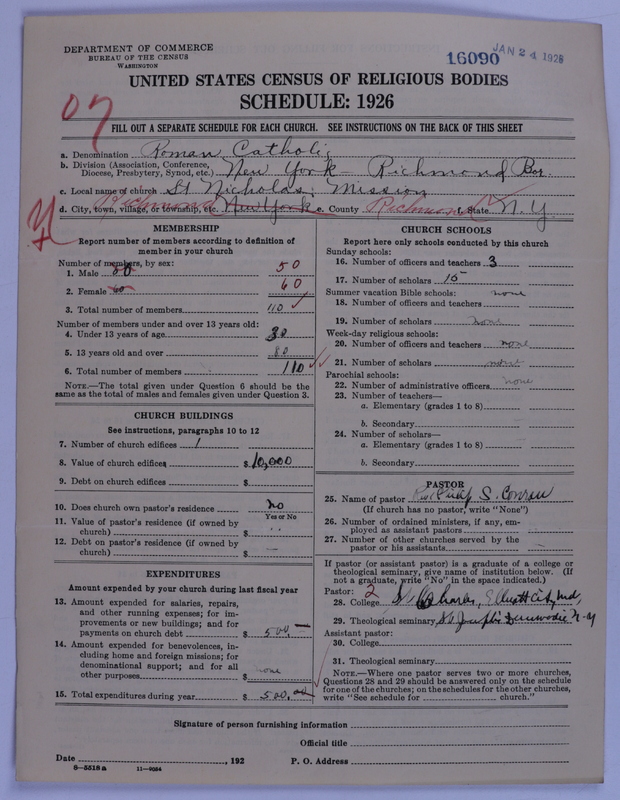 DEPARTMENT OF COMMERCE
BUREAU OF THE CENSUS
WASHINGTON
16090 JAN 24 1928
UNITED STATES CENSUS OF RELIGIOUS BODIES
SCHEDULE: 1926
07
FILL OUT A SEPARATE SCHEDULE FOR EACH CHURCH. SEE INSTRUCTIONS ON THE BACK OF THIS SHEET
a. Denomination Roman Catholic
b. Division (Association, Conference, Diocese, Presbytery, Synod, etc.) New York - Richmond Bor.
c. Local name of church St Nicholas: Mission
d. City, town, village, or township, etc. Richmond New York e. County Richmond f. State N. Y.
MEMBERSHIP
Report number of members according to definition of
member in your church
Number of members, by sex:
1. Male 50 50
2. Female 60 60
3. Total number of members 110
Number of members under and over 13 years old:
4. Under 13 years of age 30
5. 13 years old and over 80
6. Total number of members 110
NOTE.—The total given under Question 6 should be the
same as the total of males and females given under Question 3.
CHURCH BUILDINGS
See instructions, paragraphs 10 to 12
7. Number of church edifices 1
8. Value of church edifices $10,000
9. Debt on church edifices $
10. Does church own pastor's residence no
Yes or No
11. Value of pastor's residence (if owned by
church) $
12. Debt on pastor's residence (if owned by
church) $
EXPENDITURES
Amount expended by your church during last fiscal year
13. Amount expended for salaries, repairs,
and other running expenses; for im-
provements or new buildings; and for
payments on church debt $ 500.
14. Amount expended for benevolences, in-
cluding home and foreign missions; for
denominational support; and for all
other purposes $ none
15. Total expenditures during year $ 500.00
CHURCH SCHOOLS
Report here only schools conducted by this church
Sunday schools:
16. Number of officers and teachers 3
17. Number of scholars 15
Summer vacation Bible schools: none
18. Number of officers and teachers
19. Number of scholars none
Week-day religious schools:
20. Number of officers and teachers none
21. Number of scholars none
Parochial schools:
22. Number of administrative officers none
23. Number of teachers—
a. Elementary (grades 1 to 8)
b. Secondary
24. Number of scholars—
a. Elementary (grades 1 to 8)
b. Secondary
PASTOR
25. Name of pastor Rev Philip S.
(If church has no pastor, write "None")
26. Number of ordained ministers, if any, em-
ployed as assistant pastors
27. Number of other churches served by the
pastor or his assistants
If pastor (or assistant pastor) is a graduate of a college or
theological seminary, give name of institution below. (If
not a graduate, write "No" in the space indicated.)
Pastor: 2
28. College St Charles, Ellicott City, Md,
29. Theological seminary St Josephs Dunwoodie N-Y
Assistant pastor:
30. College
31. Theological seminary
NOTE.—Where one pastor serves two or more churches,
Questions 28 and 29 should be answered only on the schedule
for one of the churches; on the schedules for the other churches,
write "See schedule for church."
Signature of person furnishing information
Official title
Date , 192 P. O. Address
8—5518a 11—9034